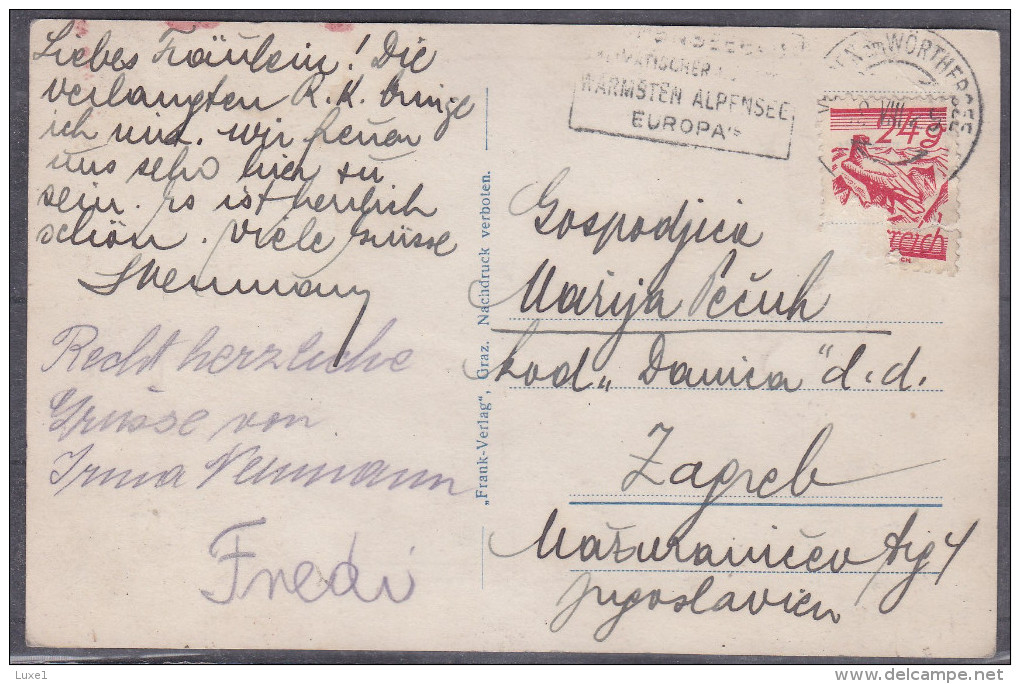 Liebes Fräulein! Die
verlangten R.K. bringe
ich mit. wir freuen
uns sehr hier zu
sein. es ist herrlich
schön. Viele Grüsse
Recht herzliche
Grüsse von
Irma Neumann
Fredi
„Frank-Verlag“, Graz. Nachdruck verboten.
WÄRMSTEN ALPENSEE
EUROPA'S
am WÖRTHERSEE
24g
Gospodjica
Marija Pečuh
kod „Danica“ d.d.
Zagreb
Mažuranićev trg 4
Jugoslavien
Luxe1
www.delcampe.net